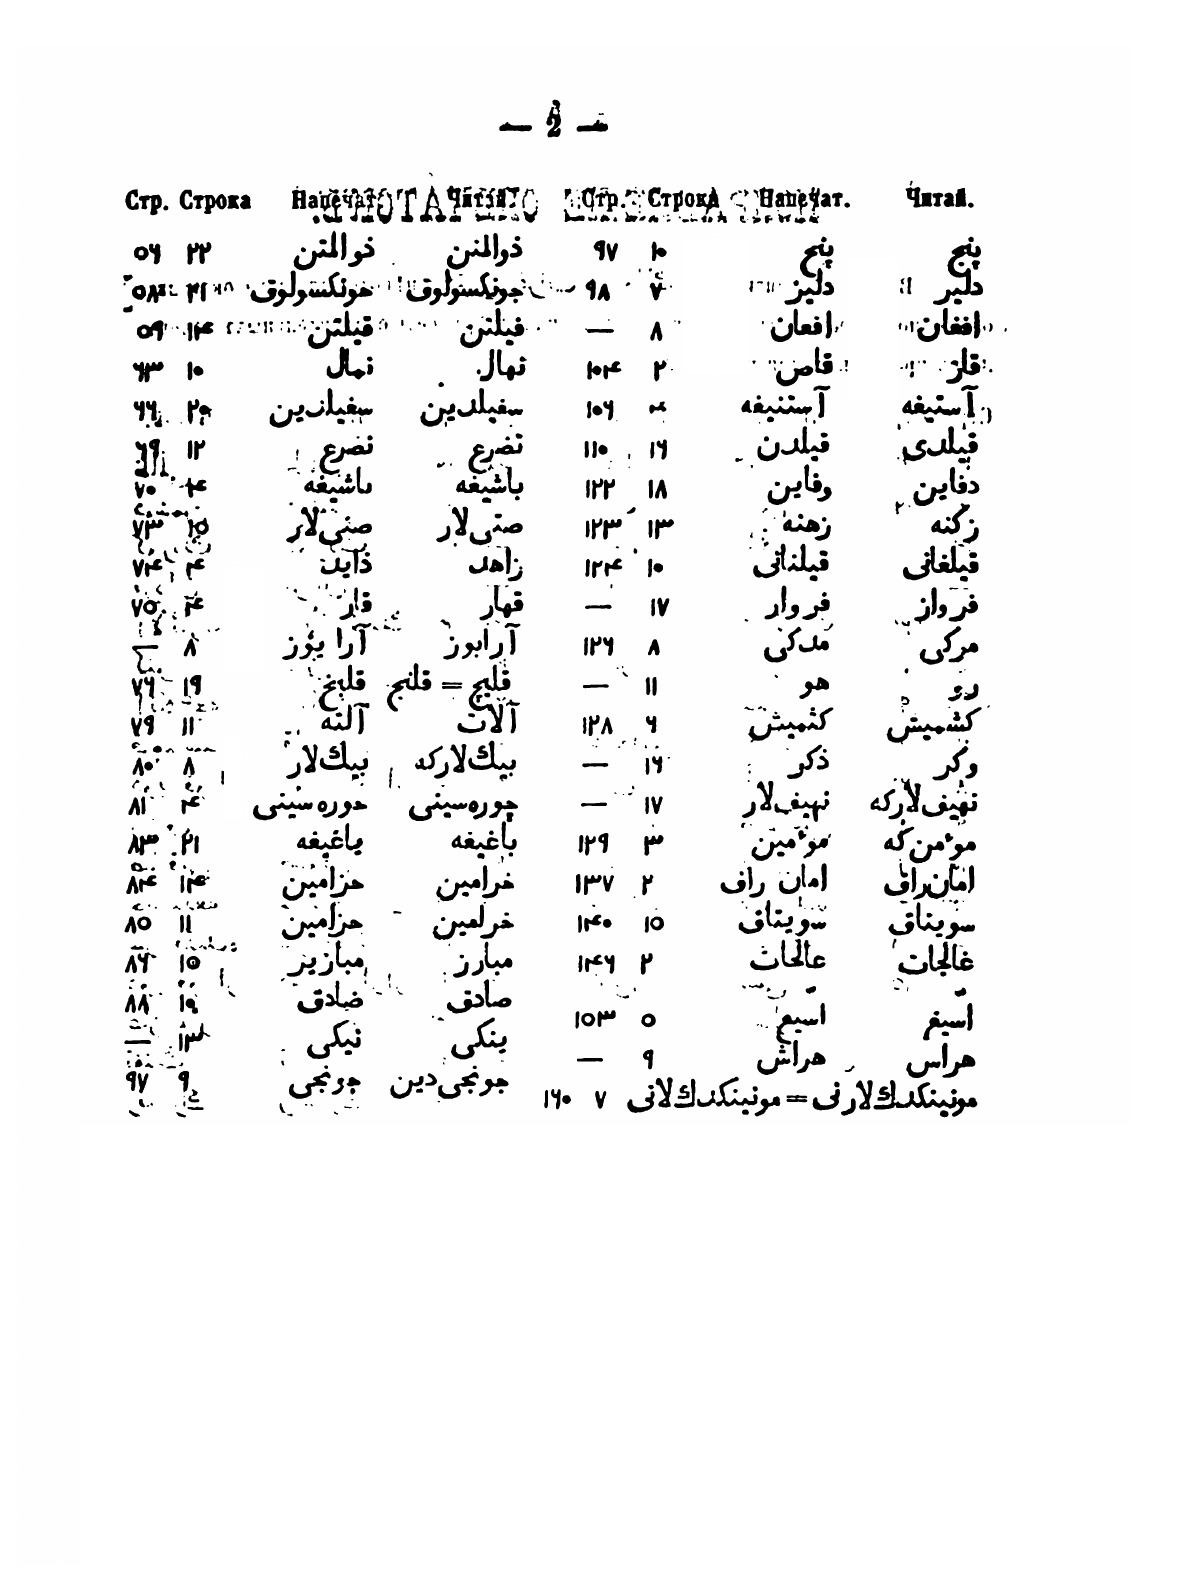 — 2 —
Стр. Строка Напечат. Читай. Стр. Строка Напечат. Читай.
٥٦ ٢٢ ذوالمتن ذوالمنن ٩٧ ١٠ پنچ پنج
٥٨ ٢١ خونكسنولوق جونكسنولوق ٩٨ ٧ دليز دلير
٥٩ ١٤ قيلتن فيلتن — ٨ افعان افغان
٦٣ ١٠ نمال نهال ١٠٤ ٢ قاص قاز
٦٦ ٢٥ سفيلزين سفيلدين ١٠٦ ٤ آستنيغه آستيغه
٦٩ ١٢ نضرع تضرع ١١٠ ١٦ قيلدن قيلدى
٧٠ ٤ ياشيغه باشيغه ١٢٢ ١٨ وفاين دفاين
٧٣ ١٥ صنى لار صتى لار ١٢٣ ١٣ زهنه زكنه
٧٤ ٤ ذايد زاهد ١٢٤ ١٠ قيلنانى قيلغانى
٧٥ ٤ قار قهار — ١٧ فروار فرواز
— ٨ آرا يوز آرابوز ١٢٦ ٨ مدكى مركى
٧٦ ١٩ قليخ قليچ = قلنج — ١١ هو رو
٧٩ ١١ آلنه آلات ١٢٨ ٦ كثميش كشميش
٨٠ ٨ بيك لار بيك لاركه — ١٦ ذكر وكر
٨١ ٤ حوره سينى چوره سينى — ١٧ نهيف لار نهيف لاركه
٨٣ ٢١ ياغيغه باغيغه ١٢٩ ٣ مؤمين مؤمن كه
٨٤ ١٤ حزامين خرامين ١٣٧ ٢ امان راف امان راق
٨٥ ١١ حزامين خرامين ١٤٠ ١٥ سويناف سويناق
٨٦ ١٥ مبازير مبارز ١٤٦ ٢ عالجات غالجات
٨٨ ضادق صادق ١٥٣ ٥ اسيع اسيغ
— ١٣ نيكى ينكى — ٩ هراش هراس
٩٧ ٩ جونجى جونجى دين ١٦٠ ٧ مونينكدك لانى = مونينكدك لارنى